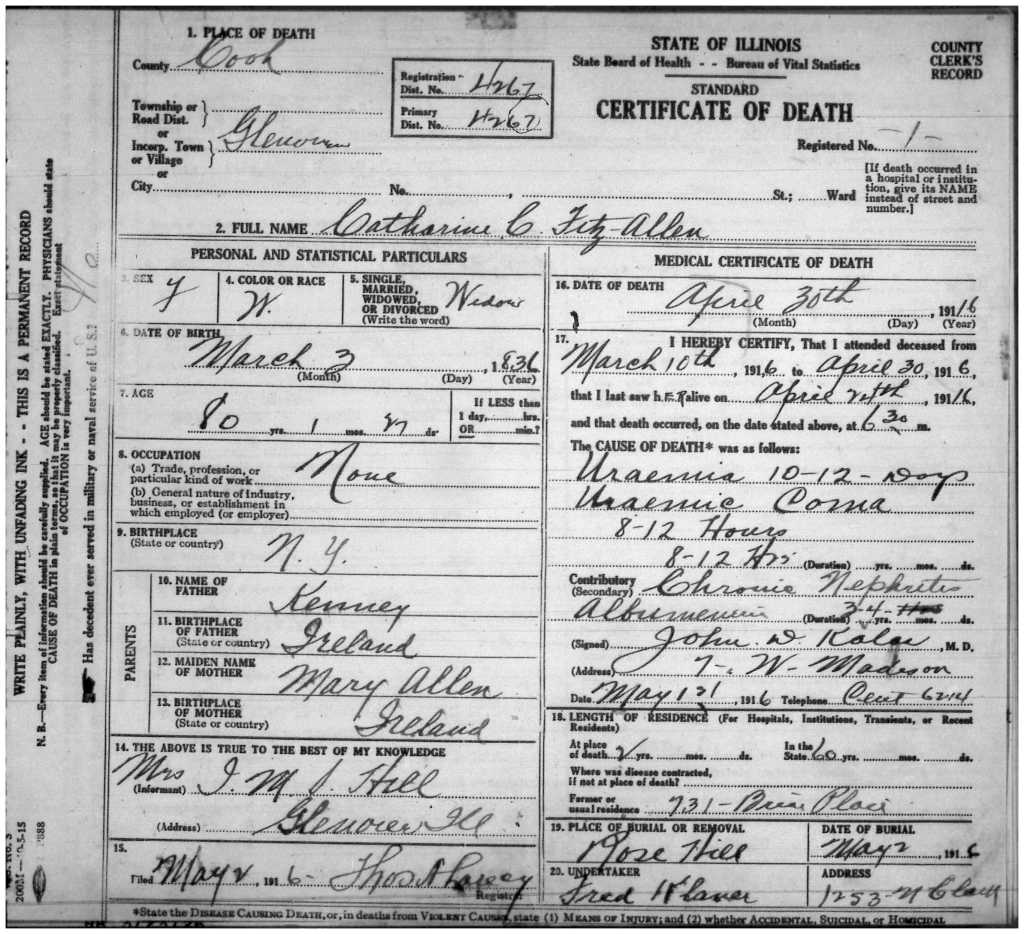 1. PLACE OF DEATH
County Cook
Registration Dist. No. 4267
Primary Dist. No. 4267
STATE OF ILLINOIS
State Board of Health - - Bureau of Vital Statistics
STANDARD
CERTIFICATE OF DEATH
COUNTY CLERK'S RECORD
Township or Road Dist.
or
Incorp. Town or Village
or
Registered No. -1-
City No. , St.; Ward
[If death occurred in a hospital or institution, give its NAME instead of street and number.]
2. FULL NAME Catharine C. Fitz-Allen
PERSONAL AND STATISTICAL PARTICULARS
3. SEX F
4. COLOR OR RACE W.
5. SINGLE, MARRIED, WIDOWED, OR DIVORCED (Write the word) Widow
6. DATE OF BIRTH
March 3, 1836
(Month) (Day) (Year)
7. AGE
80 yrs. 1 mos. 27 ds.
If LESS than 1 day, hrs. OR min.?
8. OCCUPATION
(a) Trade, profession, or particular kind of work None
(b) General nature of industry, business, or establishment in which employed (or employer)
9. BIRTHPLACE
(State or country) N.Y.
PARENTS
10. NAME OF FATHER Kenney
11. BIRTHPLACE OF FATHER (State or country) Ireland
12. MAIDEN NAME OF MOTHER Mary Allen
13. BIRTHPLACE OF MOTHER (State or country) Ireland
14. THE ABOVE IS TRUE TO THE BEST OF MY KNOWLEDGE
(Informant) Mrs J. M. Hill
(Address) Ill
15.
Filed May 2, 1916
Registrar
MEDICAL CERTIFICATE OF DEATH
16. DATE OF DEATH
April 30th, 1916
(Month) (Day) (Year)
17. I HEREBY CERTIFY, That I attended deceased from
March 10th, 1916 to April 30, 1916,
that I last saw her alive on April, 1916,
and that death occurred, on the date stated above, at 6 30 m.
The CAUSE OF DEATH* was as follows:
Uraemia 10-12-Days
Uraemic Coma
8-12 Hours
8-12 Hrs (Duration) yrs. mos. ds.
Contributory (Secondary) Chronic Nephritis
(Duration) 3-4 mos. ds.
(Signed) John W., M. D.
(Address) 7- W- Madison
Date May 1st, 1916 Telephone Cent 6214
18. LENGTH OF RESIDENCE (For Hospitals, Institutions, Transients, or Recent Residents)
At place of death 2 yrs. mos. ds. In the State 60 yrs. mos. ds.
Where was disease contracted, if not at place of death?
Former or usual residence 731- Place
19. PLACE OF BURIAL OR REMOVAL Rose Hill
DATE OF BURIAL May 2 1916
20. UNDERTAKER Fred Klaner
ADDRESS 1253-N Clark
*State the DISEASE CAUSING DEATH, or, in deaths from VIOLENT CAUSES, state (1) MEANS OF INJURY; and (2) whether ACCIDENTAL, SUICIDAL, or HOMICIDAL
WRITE PLAINLY, WITH UNFADING INK - - THIS IS A PERMANENT RECORD
N. B.—Every item of information should be carefully supplied. AGE should be stated EXACTLY. PHYSICIANS should state
CAUSE OF DEATH in plain terms, so that it may be properly classified. Exact statement
of OCCUPATION is very important.
Has decedent ever served in military or naval service of U. S.? No